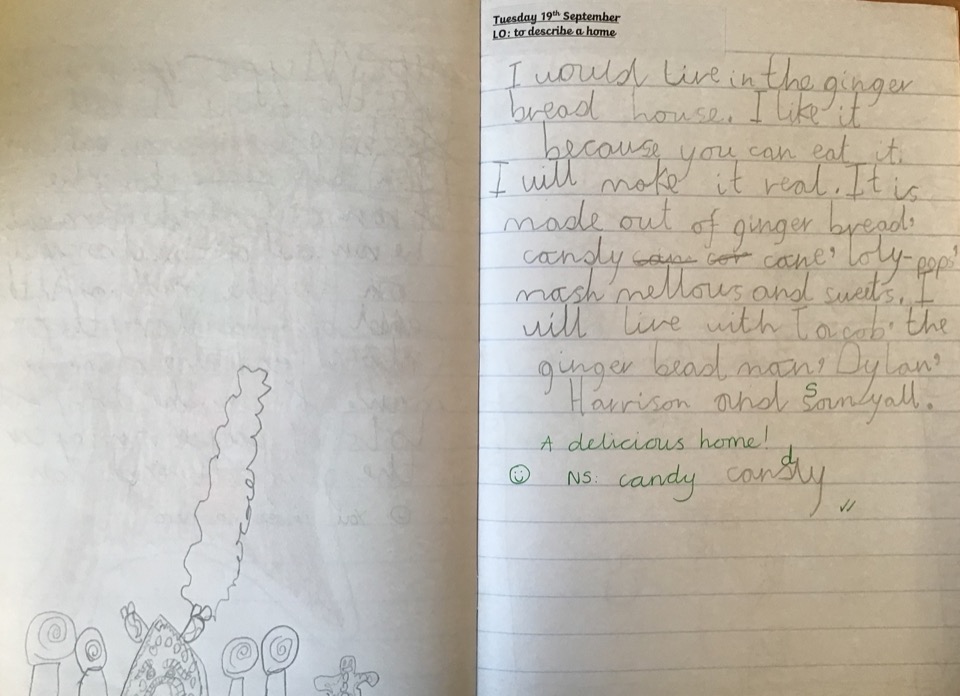 Tuesday 19th September
LO: to describe a home
I would live in the ginger
bread house. I like it
because you can eat it.
I will make it real. It is
made out of ginger bread,
candy cane, loly-pops,
mash mellows and sweets. I
will live with Jacob, the
ginger bead man, Dylan,
Harrison and
A delicious home!
NS: candy candy